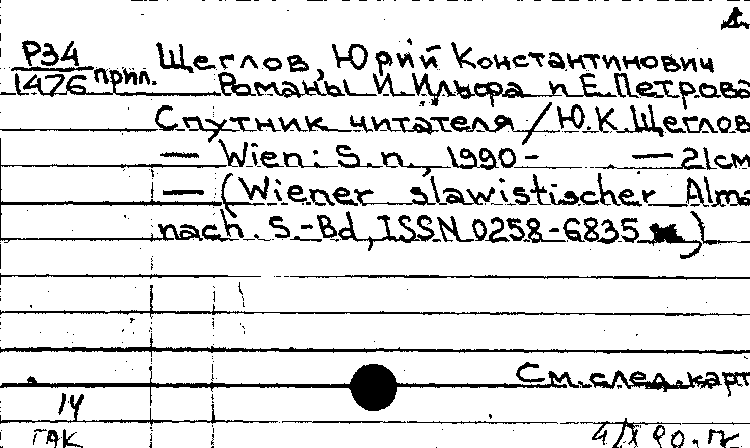 Р34
1476 прил.
Щеглов, Юрий Константинович
Романы И. Ильфа и Е. Петрова
Спутник читателя / Ю.К. Щеглов
— Wien: S. n., 1990 - — 21см
— (Wiener slawistischer Alma
nach. S.-Bd, ISSN 0258-6835)
См. след. карт
14
ГАК